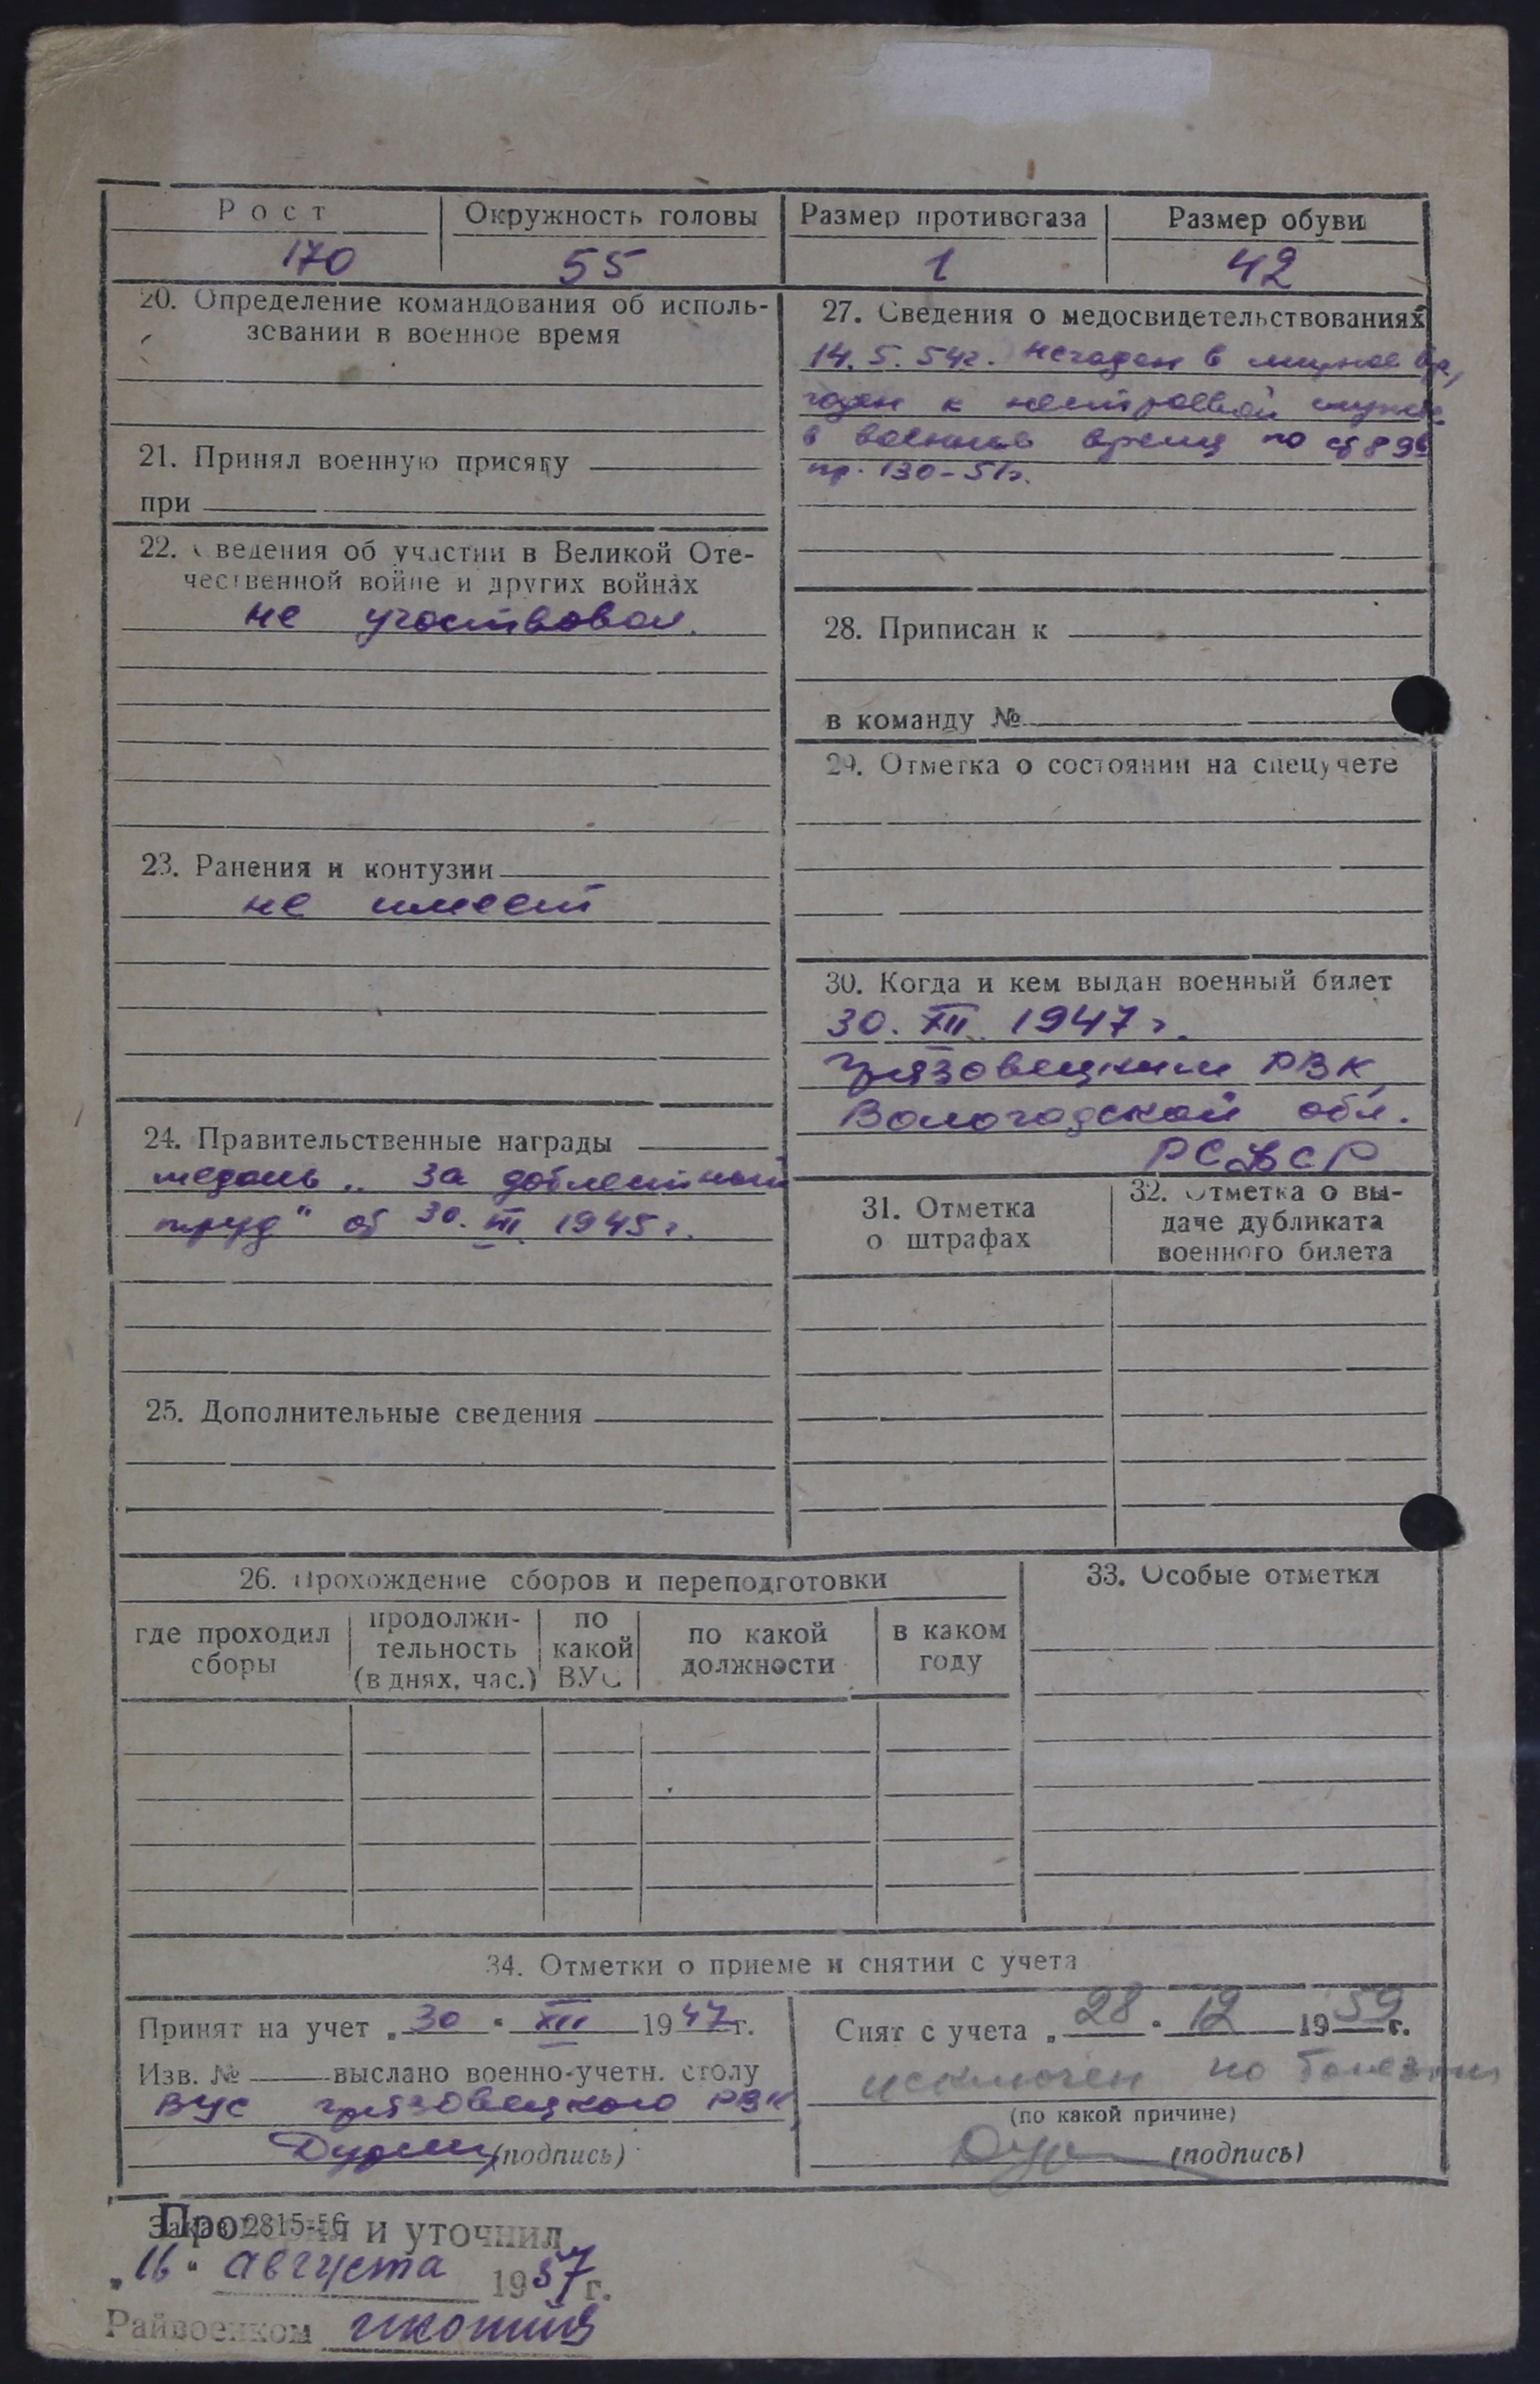 Рост
Окружность головы
Размер противогаза
Размер обуви
170
55
1
42
20. Определение командования об исполь-
зовании в военное время
21. Принял военную присягу
при
22. Сведения об участии в Великой Оте-
чественной войне и других войнах
не участвовал.
23. Ранения и контузии
не имеет
24. Правительственные награды
медаль „За доблестный
труд" от 30. III 1945 г.
25. Дополнительные сведения
27. Сведения о медосвидетельствованиях
14.5.54г. негоден в мирное вр,
годен к нестроевой службе
в военное время по ст 89б
пр. 130-51г.
28. Приписан к
в команду №
29. Отметка о состоянии на спецучете
30. Когда и кем выдан военный билет
30. XII. 1947 г.
Грязовецким РВК
Вологодской обл.
РСФСР
31. Отметка
о штрафах
32. Отметка о вы-
даче дубликата
военного билета
26. Прохождение сборов и переподготовки
где проходил
сборы
продолжи-
тельность
(в днях, час.)
по
какой
ВУС
по какой
должности
в каком
году
33. Особые отметки
34. Отметки о приеме и снятии с учета
Принят на учет „30" XII 1947г.
Изв. № выслано военно-учетн. столу
ВУС Грязовецкого РВК
(подпись)
Снят с учета „28" 12 1959г.
исключен по болезни
(по какой причине)
(подпись)
Заказ 2815-56
Проверил и уточнил
„16" августа 1957г.
Райвоенком